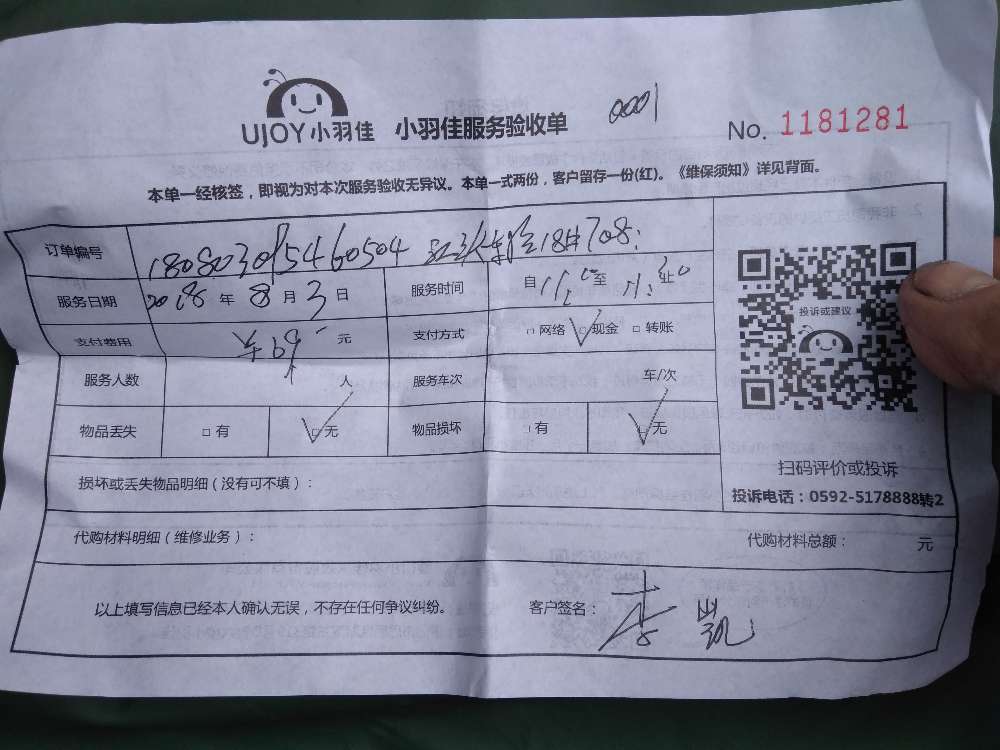 UJOY小羽佳 小羽佳服务验收单 0001 No. 1181281
本单一经核签，即视为对本次服务验收无异议。本单一式两份，客户留存一份(红)。《维保须知》详见背面。
订单编号 18080305460504 18#708
服务日期 2018 年 8 月 3 日 服务时间 自 至 止
支付费用 ¥69 元 支付方式 □ 网络 □ 现金 □ 转账
服务人数 人 服务车次 车/次
物品丢失 □ 有 □ 无 物品损坏 □ 有 □ 无
投诉或建议
扫码评价或投诉
投诉电话：0592-5178888转2
损坏或丢失物品明细（没有可不填）：
代购材料明细（维修业务）： 代购材料总额： 元
以上填写信息已经本人确认无误，不存在任何争议纠纷。 客户签名： 李凯